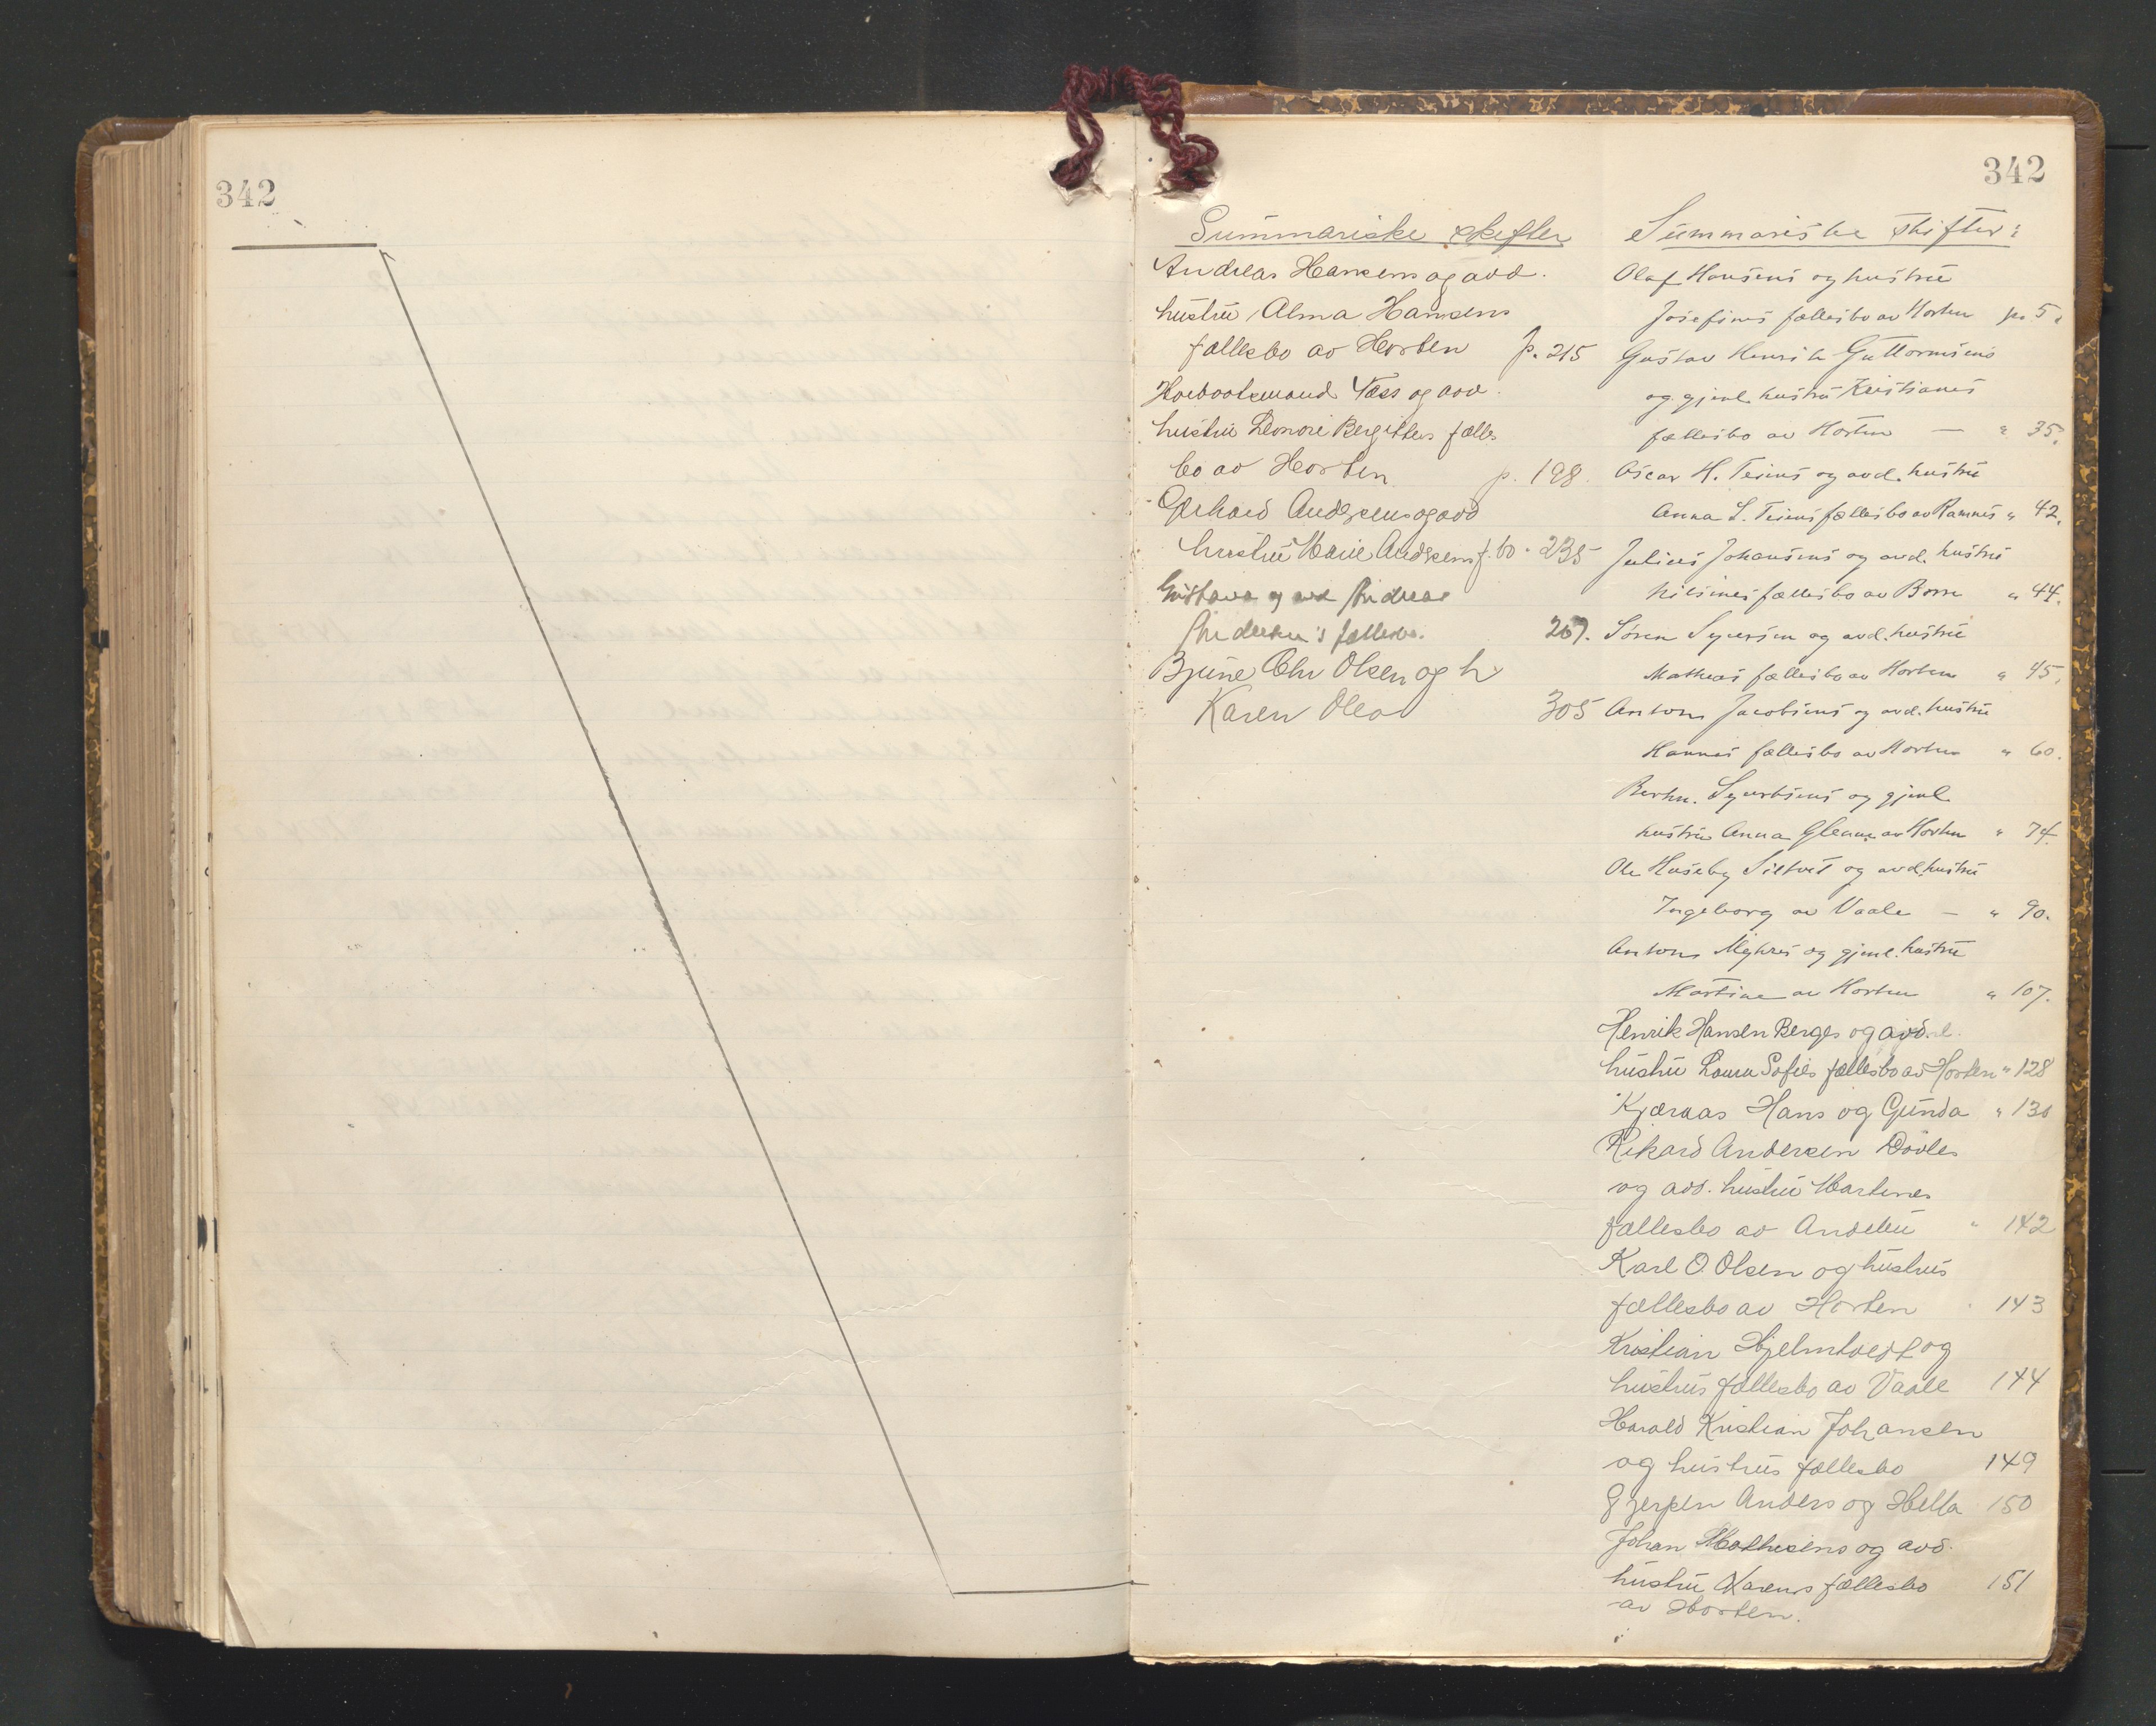 342
342
Summariske skifter
Andreas Hansens og avd.
hustru Alma Hansens
fællesbo av Horten p. 215
Næss og avd.
hustru Leonore Bergittes fælles
bo av Horten p. 198.
Gerhard Andersens og avd
hustru Marie Andersens f. bo - 235
Gustava og avd Andreas
Andersen's fællesbo. 267.
Bjune Chr Olsen og h
Karen Olea 305
Summariske skifter:
Olaf Hansens og hustru
Josefines fællesbo av Horten p. 5.
Gustav Henrik Guttormsens
og gjenl. hustru Kristianes
fællesbo av Horten — " 35.
Oscar H. Teiens og avd. hustru
Anna L. Teiens fællesbo av Ramnes " 42.
Julius Johansens og avd. hustru
Nilsines fællesbo av Borre " 44.
Søren Syversen og avd. hustru
Matheas fællesbo av Horten " 45.
Antons Jacobsens og avd. hustru
Hannas fællesbo av Horten " 60.
Bernh. Syvertsens og gjenl.
hustru Anna av Horten " 74.
Ole Huseby Siltvet og avd. hustru
Ingeborg av Vaale — " 90.
Antons Myhres og gjenl. hustru
Martine av Horten " 107.
Henrik Hansen Berges og avd.
hustru Laura Sofies fællesbo av Horten " 128
Kjæraas Hans og Gunda " 130
Rikard Andersen Døvles
og avd. hustru Martines
fællesbo av Andebu " 142
Karl O. Olsen og hustrus
fællesbo av Horten " 143
Kristian Hjelmtvedt og
hustrus fællesbo av Vaale 144
Harald Kristian Johansen
og hustrus fællesbo 149
Gjerpen Anders og Hella 150
Johan Mathisens og avd.
hustru Karens fællesbo 151
av Horten.